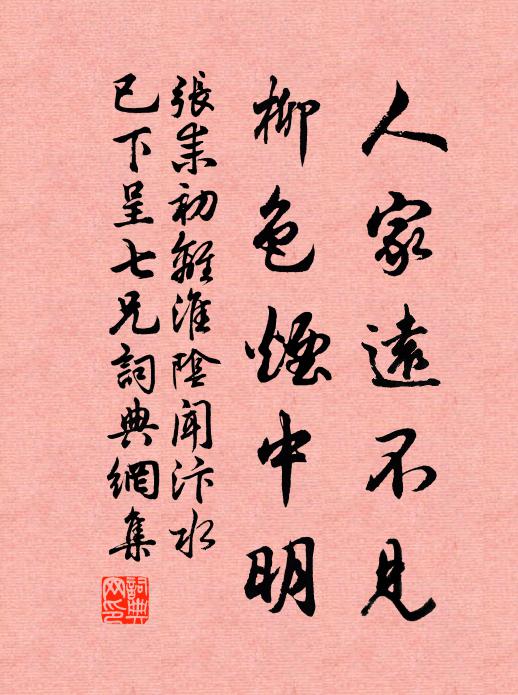 人家遠不見
柳色煙中明
張耒初離淮陰聞汴水
已下呈七兄詞典網集
詞典
网印